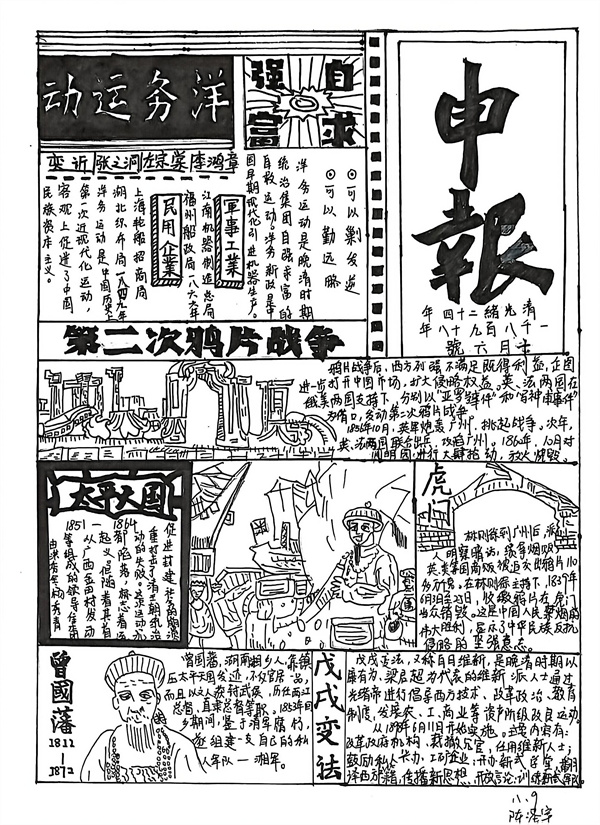 申
報
清光緒二十四年
一千八百九十八年
十月六號
洋务运动
自强
求富
李鸿章
左宗棠
张之洞
奕䜣
可以剿发逆
可以勤远略
洋务运动是晚清时期
统治集团自强求富的
自救运动。洋务新政是中
国早期现代化引进机器生产。
軍事工業
江南机器制造总局
福州船政局一八六六年
民用企業
上海轮船招商局
湖北织布局
洋务运动是中国历史上
第一次近现代化运动，
客观上促进了中国
民族资本主义。
第二次鸦片战争
鸦片战争后，西方列强不满足既得利益，企图
进一步打开中国市场，扩大侵略权益。英、法两国在
俄美两国支持下，分别以“亚罗号事件”和“马神甫事件”
为借口，发动第二次鸦片战争
1856年10月，英军炮轰广州，挑起战争。次年，
英、法两国联合出兵，攻陷广州。1860年，10月对
圆明园进行大肆抢劫，放火烧毁。
太平天国
1851
1864
促进封建社会崩溃
重打击了清朝统治
动的失败。这是运动
都陷落，标志着运
起义后随着其首
从广西金田村发动
等组成的领导集团
由洪秀全、杨秀清
虎门
林则徐到广州后，派
人明察暗访，缉拿烟贩
英、美等国商贩被迫交出鸦片110
多万斤。在林则徐主持下，1839年
6月3日至25日，收缴鸦片在虎门
当众销毁。这是中国人民禁烟斗争的
伟大胜利，显示了中华民族反抗
侵略的坚强意志。
曾國藩
1811
—
1872
曾国藩，湖南湘乡人，镇
压太平天国发迹，不仅官居一品，
而且以文人获封武侯，历任两江
总督、直隶总督等职。1853年回
乡期间，鉴于清军腐朽，
遂组建一支自己的私
人军队—湘军。
戊戌变法
戊戌变法，又称百日维新，是晚清时期以
康有为、梁启超为代表的维新派人士通过
光绪帝进行倡导西方技术、改革政治、教育
制度，发展农、工、商业等资产阶级改良运动。
从1898年6月11日开始实施。主要内容有：
改革政府机构，裁撤冗官，任用维新人士；
鼓励私人兴办工矿企业；开办新式学堂，翻
译西方书籍，传播新思想，开放言论；训练新式军队
八.9